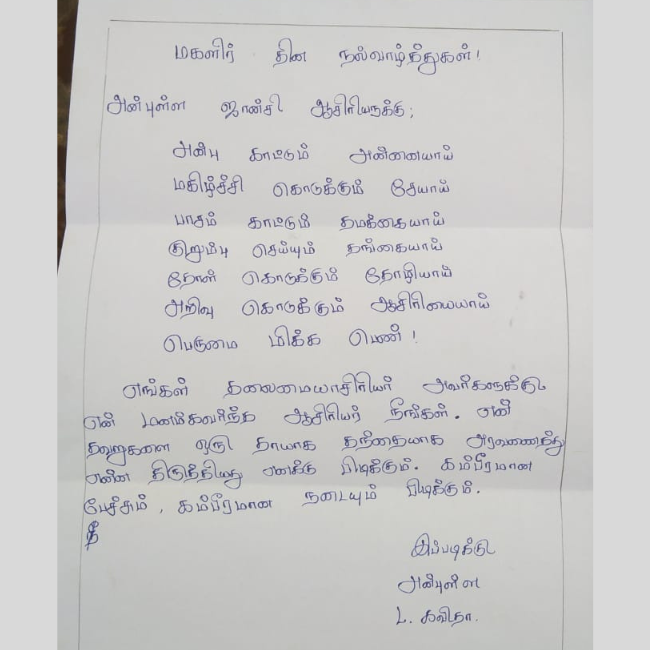 மகளிர் தின நல்வாழ்த்துகள்!
அன்புள்ள ஜான்சி ஆசிரியருக்கு;
அன்பு காட்டும் அன்னையாய்
மகிழ்ச்சி கொடுக்கும் சேயாய்
பாசம் காட்டும் தமக்கையாய்
குறும்பு செய்யும் தங்கையாய்
தோள் கொடுக்கும் தோழியாய்
அறிவு கொடுக்கும் ஆசிரியையாய்
பெருமை மிக்க பெண்!
எங்கள் தலைமையாசிரியர் அவர்களுக்கு
என் மனம்கவர்ந்த ஆசிரியர் நீங்கள். என்
தவறுகளை ஒரு தாயாக தந்தையாக அரவணைத்து
என்னை திருத்தியது எனக்கு பிடிக்கும். கம்பீரமான
பேச்சும், கம்பீரமான நடையும் பிடிக்கும்.
நீ
இப்படிக்கு
அன்புள்ள
L. கவிதா.